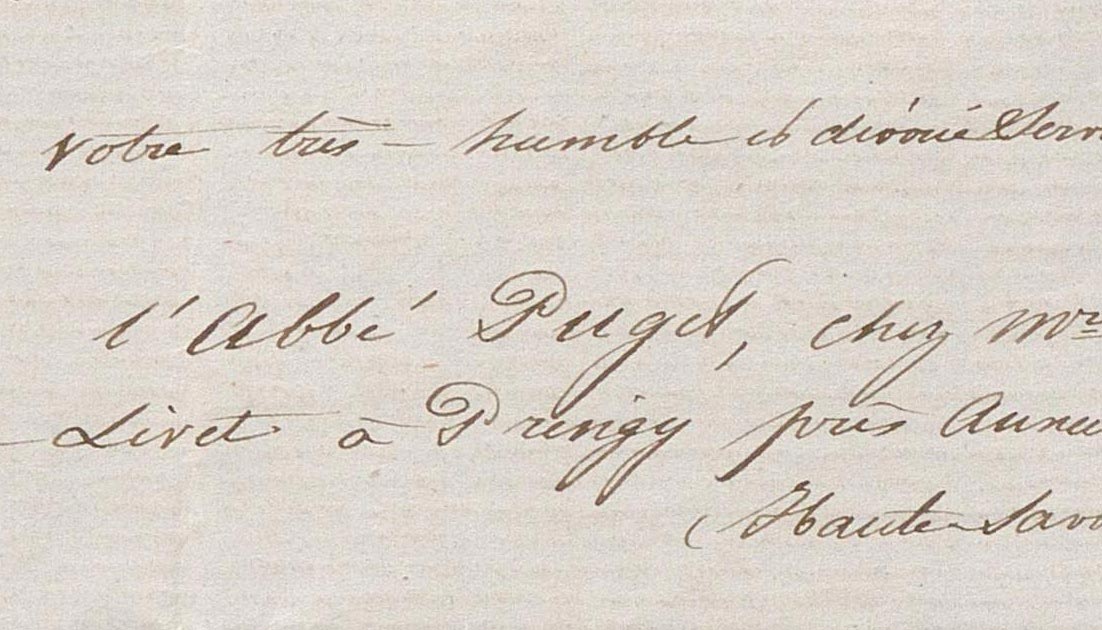 votre très-humble et dévoué Serv
l'Abbé Puget, chez Mr
Livet à Pringy près Anne
(Haute-Savo